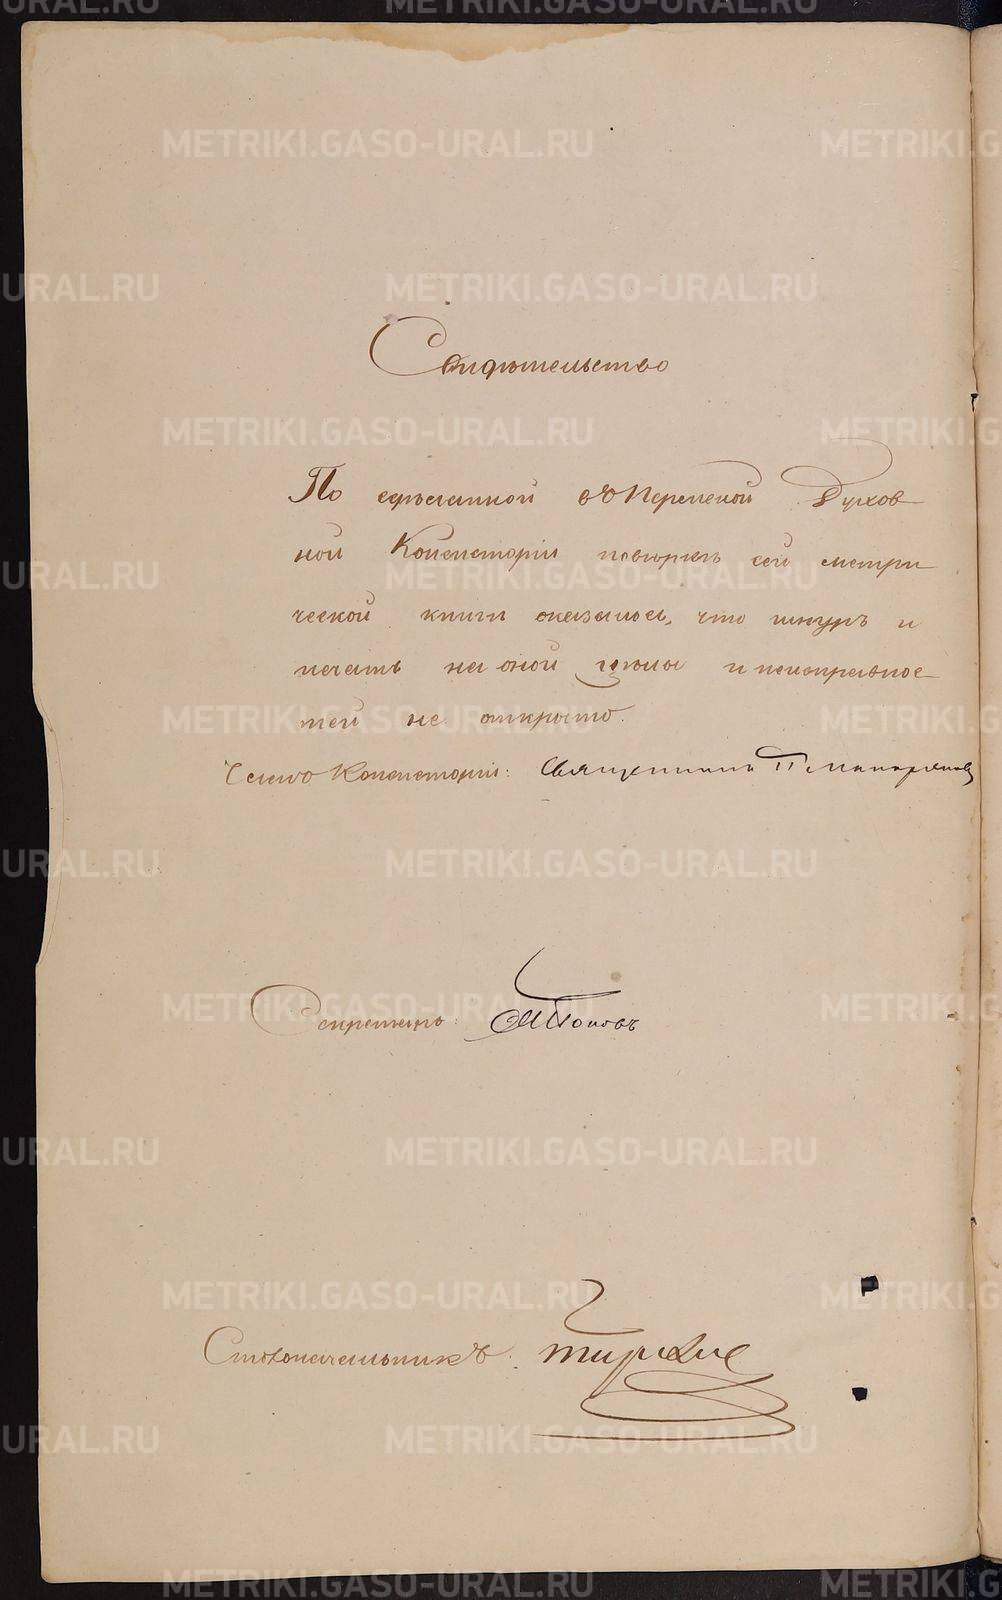 Свидѣтельство
По сдѣланной въ Пермской Духов
ной Консисторіи повѣркѣ сей метри
ческой книги оказалось, что шнуръ и
печать на оной цѣлы и неисправнос
тей не открыто.
Членъ Консисторіи: Священникъ П
Секретарь: Поповъ
Столоначальникъ:
METRIKI.GASO-URAL.RU